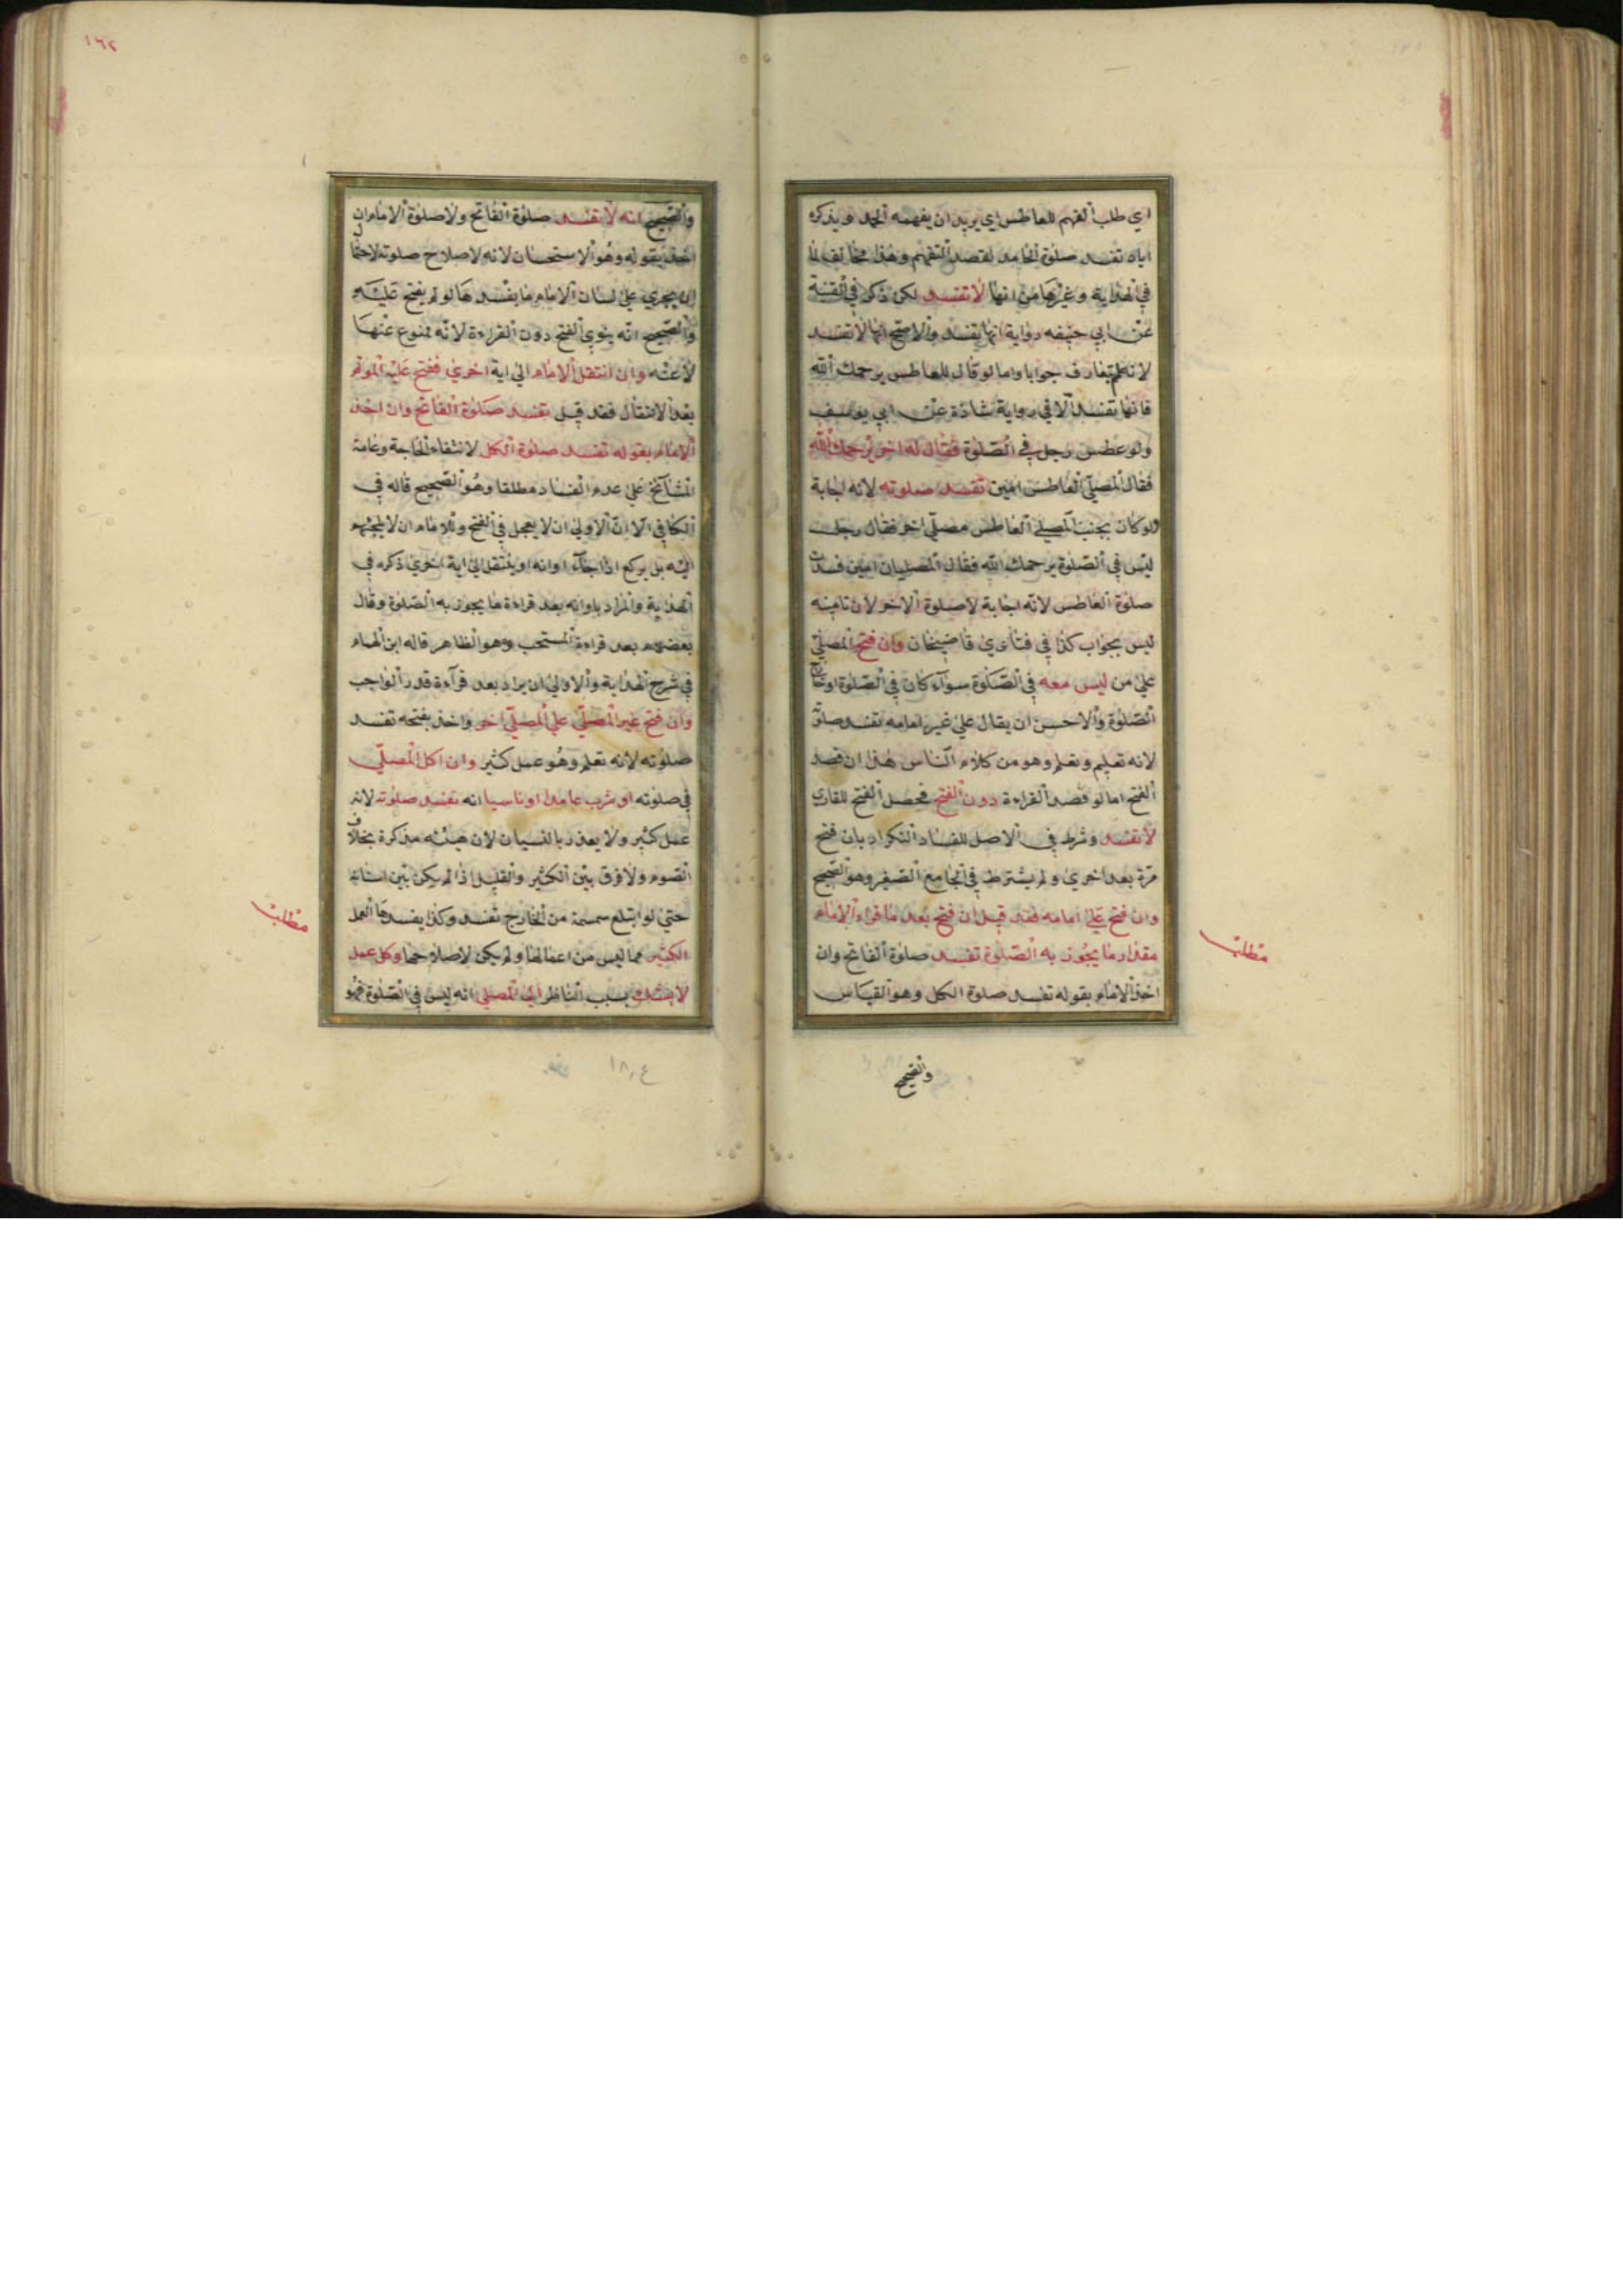 اي طلب الفهم للعاطس اي يريد ان يفهمه الحمد ويذكره
اياه تفسد صلوة الحامد لقصد التفهيم وهذا مخالف لما
في الهداية وغيرها من انها لا تفسد لكن ذكر في القنية
عن ابي حنيفه رواية انها تفسد والاصح انها لا تفسد
لانه لم يتعارف جوابا واما لو قال للعاطس يرحمك الله
فانها تفسد الا في رواية شاذة عن ابي يوسف
ولو عطس رجل في الصلوة فقال له اخر يرحمك الله
فقال المصلي العاطس امين تفسد صلوته لانه اجابة
ولو كان بجنب المصلي العاطس مصلي اخر فقال رجل
ليس في الصلوة يرحمك الله فقال المصليان امين فسدت
صلوة العاطس لانه اجابة لا صلوة الاخر لان تامينه
ليس بجواب كذا في فتاوي قاضيخان وان فتح المصلي
علي من ليس معه في الصلوة سوآء كان في الصلوة او خارج
الصلوة والاحسن ان يقال علي غير امامه تفسد صلوته
لانه تعليم وتعلم وهو من كلام الناس هذا ان قصد
الفتح اما لو قصد القراءة دون الفتح فحصل الفتح للقاري
لا تفسد وشرط في الاصل للفساد التكرار بان فتح
مرة بعد اخري ولم يشترط في الجامع الصغير وهو الصحيح
وان فتح علي امامه فقد قيل ان فتح بعد ما قراء الامام
مقدار ما يجوز به الصلوة تفسد صلوة الفاتح وان
اخذ الامام بقوله تفسد صلوة الكل وهو القياس
مطلب
والصحيح
١٦٢
والصحيح انه لا تفسد صلوة الفاتح ولا صلوة الامام ان
اخذ بقوله وهو الاستحسان لانه لاصلاح صلوته لاحتمال
ان يجري علي لسان الامام ما يفسدها لو لم يفتح عليه
والصحيح انه ينوي الفتح دون القراءة لانه ممنوع عنها
لا عنه وان انتقل الامام الي اية اخري ففتح عليه الموتم
بعد الانتقال فقد قيل تفسد صلوة الفاتح وان اخذ
الامام بقوله تفسد صلوة الكل لانتفاء الحاجة وعامة
المشآئخ علي عدم الفساد مطلقا وهو الصحيح قاله في
الكافي الا ان الاولي ان لا يعجل في الفتح وللامام ان لا يلجئهم
اليه بل يركع اذا جآء اوانه او ينتقل الي اية اخري ذكره في
الهداية والمراد باوانه بعد قراءة ما يجوز به الصلوة وقال
بعضهم بعد قراءة المستحب وهو الظاهر قاله ابن الهمام
في شرح الهداية والاولي ان يراد بعد قرآءة قدر الواجب
وان فتح غير المصلي علي المصلي اخر واخذ بفتحه تفسد
صلوته لانه تعلم وهو عمل كثير وان اكل المصلي
في صلوته او شرب عامدا او ناسيا انه تفسد صلوته لانه
عمل كثير ولا يعذر بالنسيان لان هيئته مذكرة بخلاف
الصوم ولا فرق بين الكثير والقليل اذا لم يكن بين اسنانه
حتي لو ابتلع سمسمة من الخارج تفسد وكذا يفسدها العمل
الكثير مما ليس من اعمالها ولم يكن لاصلاحها وكل عمل
لا يشك بسبب الناظر الي المصلي انه ليس في الصلوة فهو
مطلب